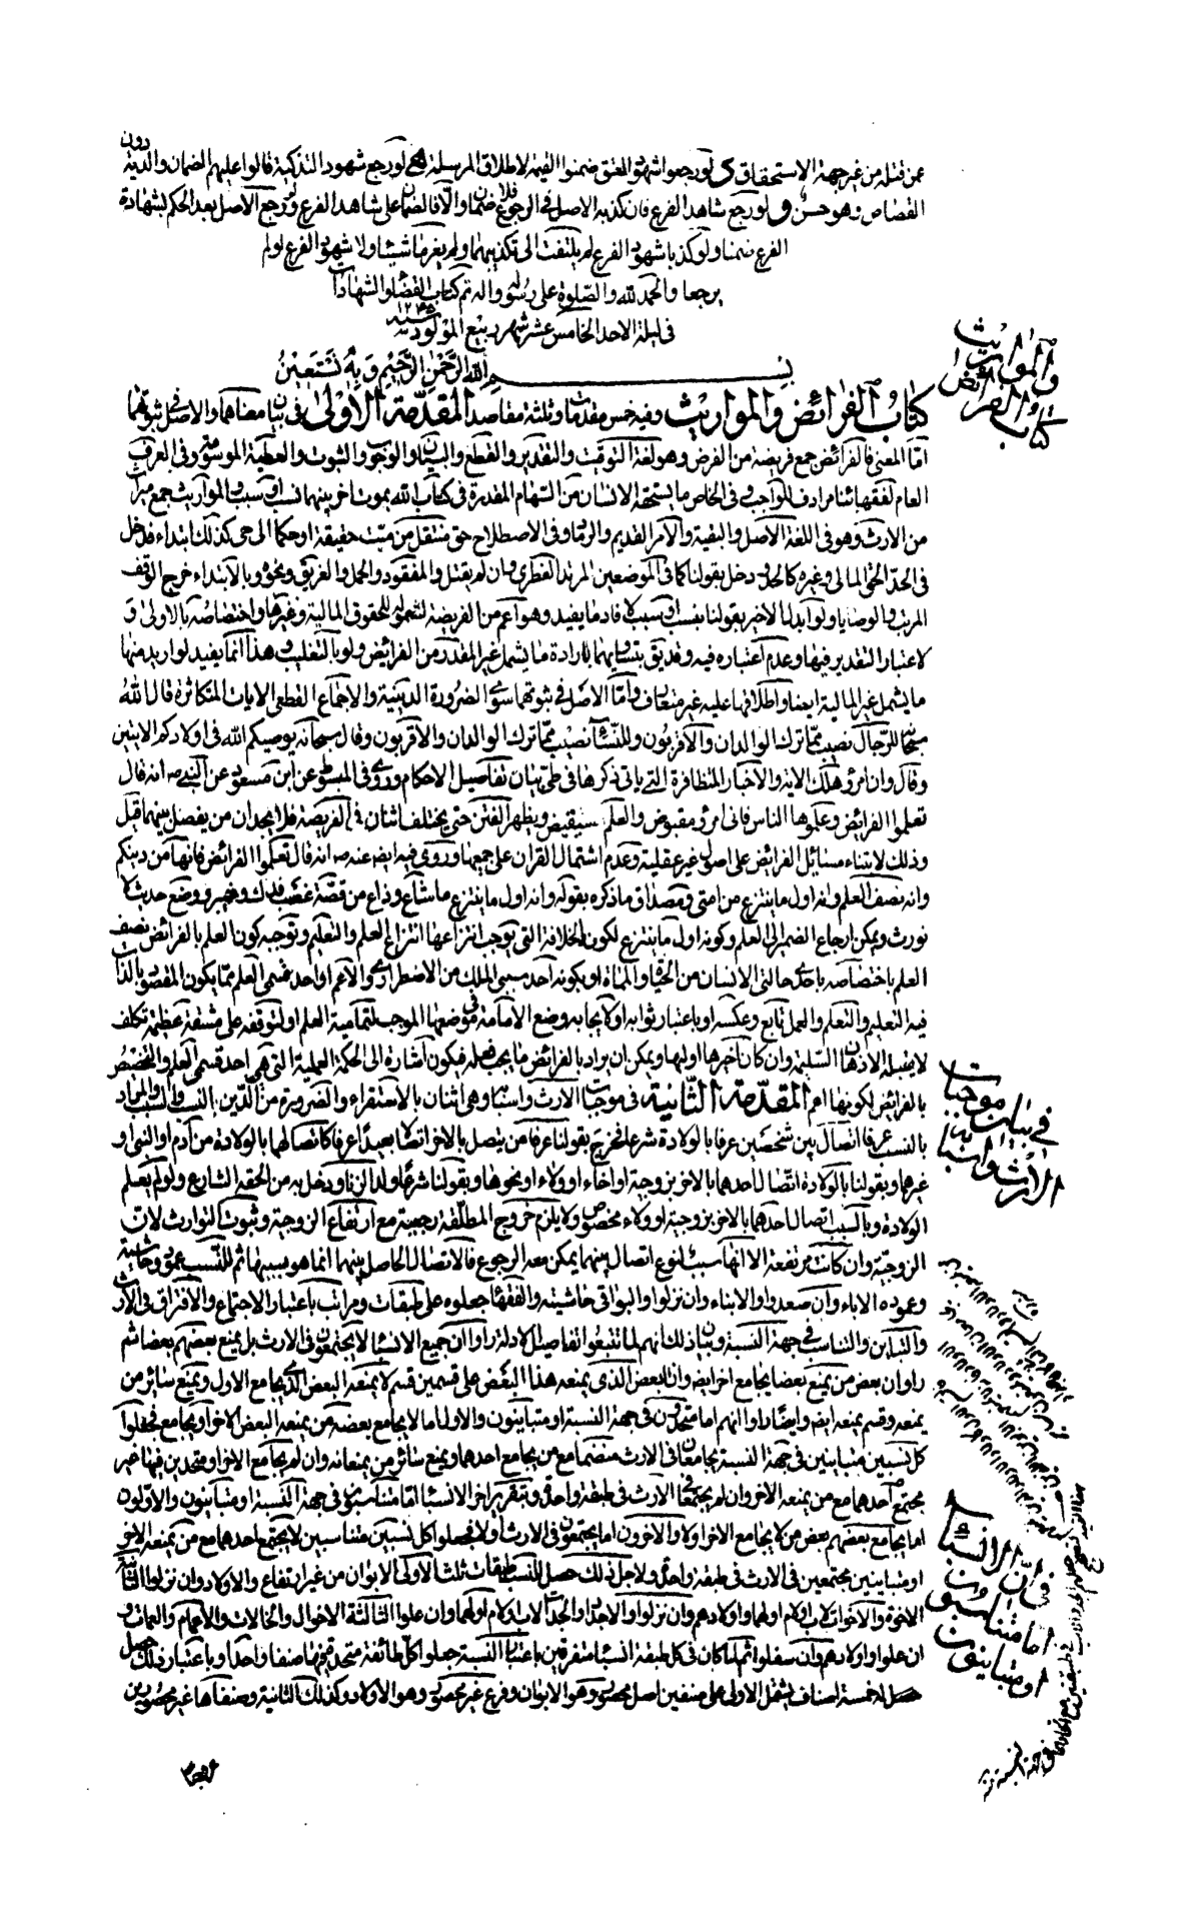 عن قتله من غير جهة الاستحقاق ى لو رجعوا شهود العتق ضمنوا القيمة لاطلاق المرسلة لو رجع شهود التزكية قالوا عليهم الضمان والدية دون
القصاص وهو حسن و لو رجع شاهد الفرع فان كذبه الاصل في الرجوع فلا ضمان والا فالضمان على شاهد الفرع ولو رجع الاصل بعد الحكم بشهادة
الفرع ضمنا ولو كذبا شهود الفرع لم يلتفت الى تكذيبهما ولم يغرما شيئا ولا شهود الفرع لو لم
يرجعا والحمد لله والصلوة على رسوله واله تم كتاب القضاء والشهادات
في ليلة الاحد الخامس عشر شهر ربيع المولود سنة ١٢٤٥
بسم الله الرحمن الرحيم وبه نستعين
كتاب الفرائض والمواريث وفيه خمس مقدمات وثلثة مقاصد المقدمة الاولى في بيان معناهما والاصل في ثبوتهما
اما المعنى فالفرائض جمع فريضة من الفرض وهو لغة التوقيت والتقدير والقطع والبيان والوجوب والثبوت والعطية الموسومة وفي العرف
العام لفقهائنا مرادف للواجب وفي الخاص ما يستحقه الانسان من السهام المقدرة في كتاب الله بموت اخر بينهما نسب او سبب والمواريث جمع ميراث
من الارث وهو في اللغة الاصل والبقية والامر القديم والرماد وفي الاصطلاح حق منتقل من ميت حقيقة او حكما الى حي كذلك ابتداء فدخل
في الحد الحق المالي وغيره كالحد ودخل بقولنا كما في الموضعين المرتد الفطري وان لم يقتل والمفقود والحمل والغريق ونحوه وبالابتداء خرج الوقف
المرتب والوصايا ولو ابدلنا الاخير بقولنا بنسب او سبب لافاد ما يفيد وهو اعم من الفريضة لشموله للحقوق المالية وغيرها واختصاصه بالاولى و
لاعتبار التقدير فيها وعدم اعتباره فيه وقد يق بتساويهما بارادة ما يشمل غير المقدر من الفرائض ولو بالتغليب وهذا انما يفيد لو اريد منها
ما يشمل غير المالية ايضا واطلاقها عليه غير متعارف واما الاصل في ثبوتهما سوى الضرورة الدينية والاجماع القطعي الايات المتكاثرة قال الله
سبحانه للرجال نصيب مما ترك الوالدان والاقربون وللنساء نصيب مما ترك الوالدان والاقربون وقال سبحانه يوصيكم الله في اولادكم الايتين
وقال وان امرؤ هلك الاية والاخبار المتظافرة التي ياتي ذكرها في طي بيان تفاصيل الاحكام وروى في المبسوط عن ابن مسعود عن النبي ص انه قال
تعلموا الفرائض وعلموها الناس فاني امرؤ مقبوض والعلم سيقبض ويظهر الفتن حتى يختلف اثنان في الفريضة فلا يجدان من يفصل بينهما قيل
وذلك لابتناء مسائيل الفرائض على اصول غير عقلية وعدم اشتمال القران على جميعها وروى فيه ايض عنه ص انه قال تعلموا الفرائض فانها من دينكم
وانه نصف العلم وانه اول ما ينتزع من امتي ومصداق ما ذكره بقوله وانه اول ما ينتزع ما شاع وذاع من قصة غصب فدك وخيبر ووضع حديث لا
نورث ويمكن ارجاع الضمير الى العلم وكونه اول ما ينتزع لكون الخلافة التي يوجب انتزاعها انتزاع العلم والتعليم وتوجيه كون العلم بالفرائض نصف
العلم باختصاصه باحدى حالتي الانسان من الحيوة والمماة او بكونه احد سببي الملك من الاضطراري والاعم او احد قسمي العلم مما يكون المقصود بالذات
فيه التعليم والتعلم والعمل تابع وعكسه او باعتبار ثوابه او لايجابه وضع الامامة في موضعها الموجب لتمامية العلم او لتوقفه على مشقة عظيمة تكلف
لا يقبله الاذهان السليمة وان كان اخرها اولها ويمكن ان يراد بالفرائض ما يجب فعله فيكون اشارة الى الحكمة العملية التي هي احد قسمي العلم والتخصيص
بالفرائض لكونها اهم المقدمة الثانية في موجبات الارث واسبابه وهي اثنان بالاستقراء والضرورة من الدين النسب والسبب والمراد
بالنسب عرفا اتصال بين شخصين عرفا بالولادة شرعا فخرج بقولنا عرفا من يتصل بالاخر اتصالا بعيدا عرفا كاتصالهما بالولادة من آدم او النبي او
غيرهما وبقولنا بالولادة اتصال احدهما بالاخر بزوجية او اخاء او ولاء او نحوها وبقولنا شرعا ولد الزنا ودخل به من الحقه الشارع ولو لم يعلم
الولادة وبالسبب اتصال احدهما بالاخر بزوجية او ولاء مخصوص ولا يلزم خروج المطلقة رجعية مع ارتفاع الزوجية وثبوت التوارث لان
الزوجية وان كانت مرتفعة الا انها سبب لنوع اتصال بينهما يمكن معه الرجوع فالاتصال الحاصل بينهما انما هو بسببها ثم للنسب عمود وحاشية
وعموده الاباء وان صعدوا والابناء وان نزلوا والبواقي حاشيته والفقهاء جعلوه على طبقات ومراتب باعتبار الاجتماع والافتراق في الارث
والتباين والتناسب في جهة النسبة وبيان ذلك انهم لما تتبعوا تفاصيل الادلة راوا ان جميع الانسباء لا يجتمعون في الارث بل يمنع بعضهم بعضا ثم
راوا ان بعض من يمنع بعضا يجامع اخر ايض وان البعض الذي يمنعه هذا البعض على قسمين قسم لا يمنعه البعض الذي يجامع الاول ويمنع سائر من
يمنعه وقسم يمنعه ايض وايضا راوا انهم اما متحدون في جهة النسبة او متباينون والاول اما لا يجامع بعضه من يمنعه البعض الاخر او يجامع فجعلوا
كل نسيبين متباينين في جهة النسبة يجامعان في الارث منضما مع من يجامع احدهما ويمنع سائر من يمنعانه وان لم يجامع الاخر او متحدين فيها غير
مجتمع احدهما مع من يمنعه الاخر وان لم يجتمعا في الارث في طبقة واحدة وبتقرير اخر الانسباء اما متناسبون في جهة النسبة او متباينون والاولون
اما يجامع بعضهم بعض من لا يجامع الاخر اولا والاخرون اما يجتمعون في الارث اولا فجعلوا كل نسيبين متناسبين لا يجتمع احدهما مع من يمنعه الاخر
او متباينين مجتمعين في الارث في طبقة واحدة ولاجل ذلك حصل للنسب طبقات ثلث الاولى الابوان من غير ارتفاع والاولاد وان نزلوا الثانية
الاخوة والاخوات لاب او لام او لهما واولادهم وان نزلوا والاجداد والجدات لاب او لام او لهما وان علوا الثالثة الاخوال والخالات والاعمام والعمات و
ان علوا واولادهم وان سفلوا ثم لما كان في كل طبقة انسباء متفرقين باعتبار النسبة جعلوا كل طائفة متحدة فيها صنفا واحدا وباعتبار ذلك حصل
حصل له خمسة اصناف يشتمل الاولى على صنفين اصل محصور وهو الابوان وفرع غير محصور وهو الاولاد وكذلك الثانية وصنفاها غير محصورين
كتاب الفرائض
والمواريث
في بيان موجبات
الارث واسبابه
في ان الانسباء
اما متناسبون
او متباينون